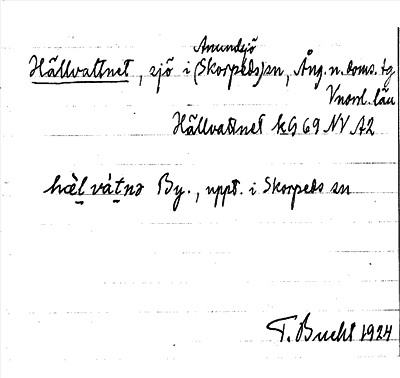 Anundsjö
Hällvattnet, sjö i (Skorpeds) sn, Ång. n. doms. tg
Vnorrl. län
Hällvattnet kG 69 NV A2
hæ̀l̠ vát̠nə By., uppt. i Skorpeds sn
T. Bucht 1924